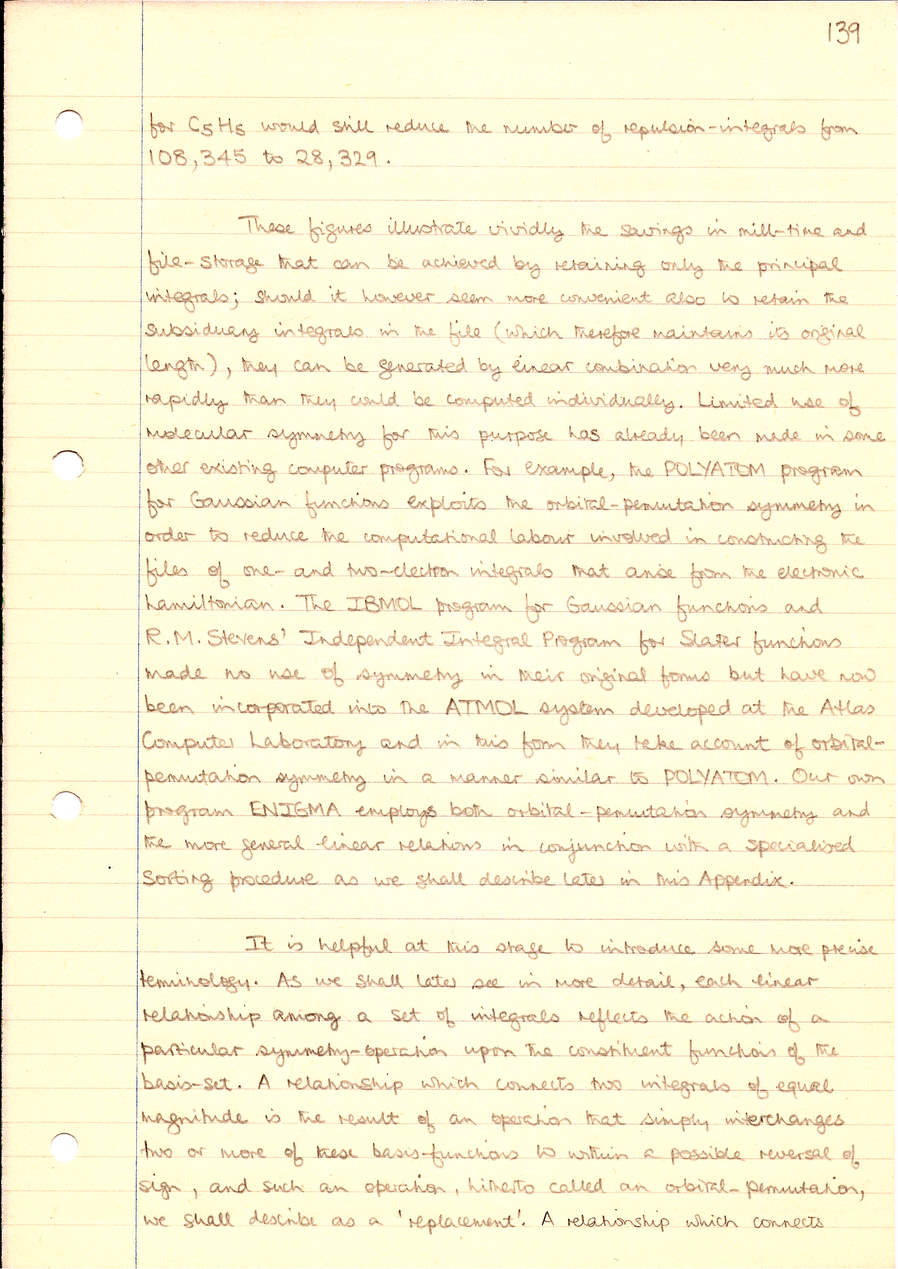 139
for C5H5 would still reduce the number of repulsion-integrals from
108,345 to 28,329.
These figures illustrate vividly the savings in mill-time and
file-storage that can be achieved by retaining only the principal
integrals; should it however seem more convenient also to retain the
subsiduary integrals in the file (which therefore maintains its original
length), they can be generated by linear combination very much more
rapidly than they could be computed individually. Limited use of
molecular symmetry for this purpose has already been made in some
other existing computer programs. For example, the POLYATOM program
for Gaussian functions exploits the orbital-permutation symmetry in
order to reduce the computational labour involved in constructing the
files of one- and two-electron integrals that arise from the electronic
hamiltonian. The IBMOL program for Gaussian functions and
R.M. Stevens' Independent Integral Program for Slater functions
made no use of symmetry in their original forms but have now
been incorporated into the ATMOL system developed at the Atlas
Computer Laboratory and in this form they take account of orbital-
permutation symmetry in a manner similar to POLYATOM. Our own
program ENIGMA employs both orbital-permutation symmetry and
the more general linear relations in conjunction with a specialised
sorting procedure as we shall describe later in this Appendix.
It is helpful at this stage to introduce some more precise
terminology. As we shall later see in more detail, each linear
relationship among a set of integrals reflects the action of a
particular symmetry-operation upon the constituent functions of the
basis-set. A relationship which connects two integrals of equal
magnitude is the result of an operation that simply interchanges
two or more of these basis-functions to within a possible reversal of
sign, and such an operation, hitherto called an orbital-permutation,
we shall describe as a 'replacement'. A relationship which connects